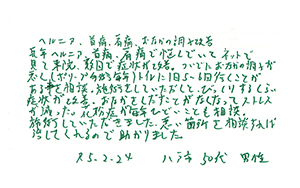 ヘルニア、首痛、肩痛、おなかの調子改善
長年ヘルニア、首痛、肩痛で悩んでいてネットで
見て来院、数回で症状が改善。ついでにおなかの調子が
悪くトイレに1日5~6回行くことが
ある事を相談。施術をしていただくと、びっくりするくらい
症状が改善。おなかをくだすことがなくなってストレス
が減った。花粉症が毎年ひどいことも相談。
施術していただきました。悪い箇所を相談すれば
治してくれるので助かりました。
R5.2.24 八戸市 50代 男性